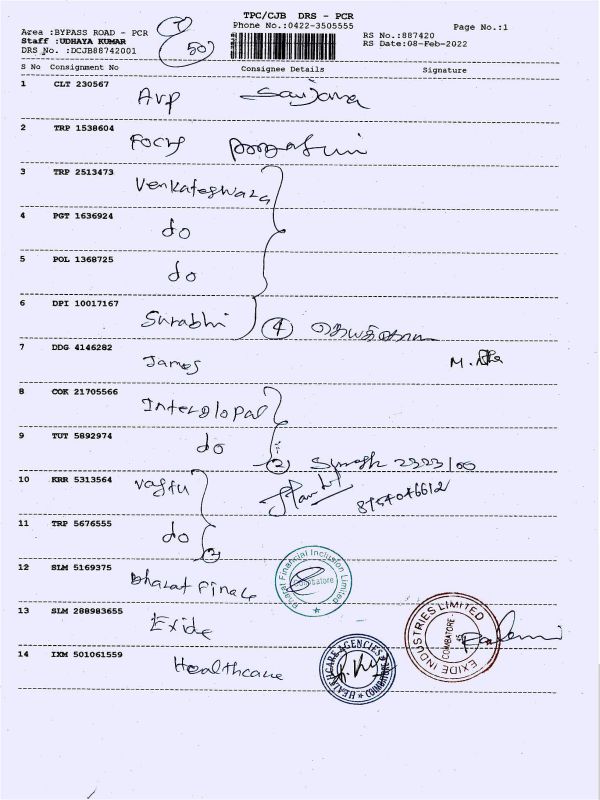 TPC/CJB DRS - PCR
Phone No.:0422-3505555
Page No.:1
Area :BYPASS ROAD - PCR
Staff :UDHAYA KUMAR
DRS No. :DCJB88742001
50
RS No.:887420
RS Date:08-Feb-2022
S No Consignment No Consignee Details Signature
1 CLT 230567
Avp
2 TRP 1538604
Focus
3 TRP 2513473
Venkateswara
4 PGT 1636924
do
5 POL 1368725
do
6 DPI 10017167
Surabhi 4
7 DDG 4146282
James M.
8 COK 21705566
Interglopal
9 TUT 5892974
do 2
10 KRR 5313564
Vastu
11 TRP 5676555
do 2
12 SLM 5169375
Bharat Finace
Bharat Financial Inclusion Limited
Coimbatore
13 SLM 288983655
Exide
EXIDE INDUSTRIES LIMITED
COIMBATORE
14 IXM 501061559
Healthcare
HEALTHCARE AGENCIES
COIMBATORE